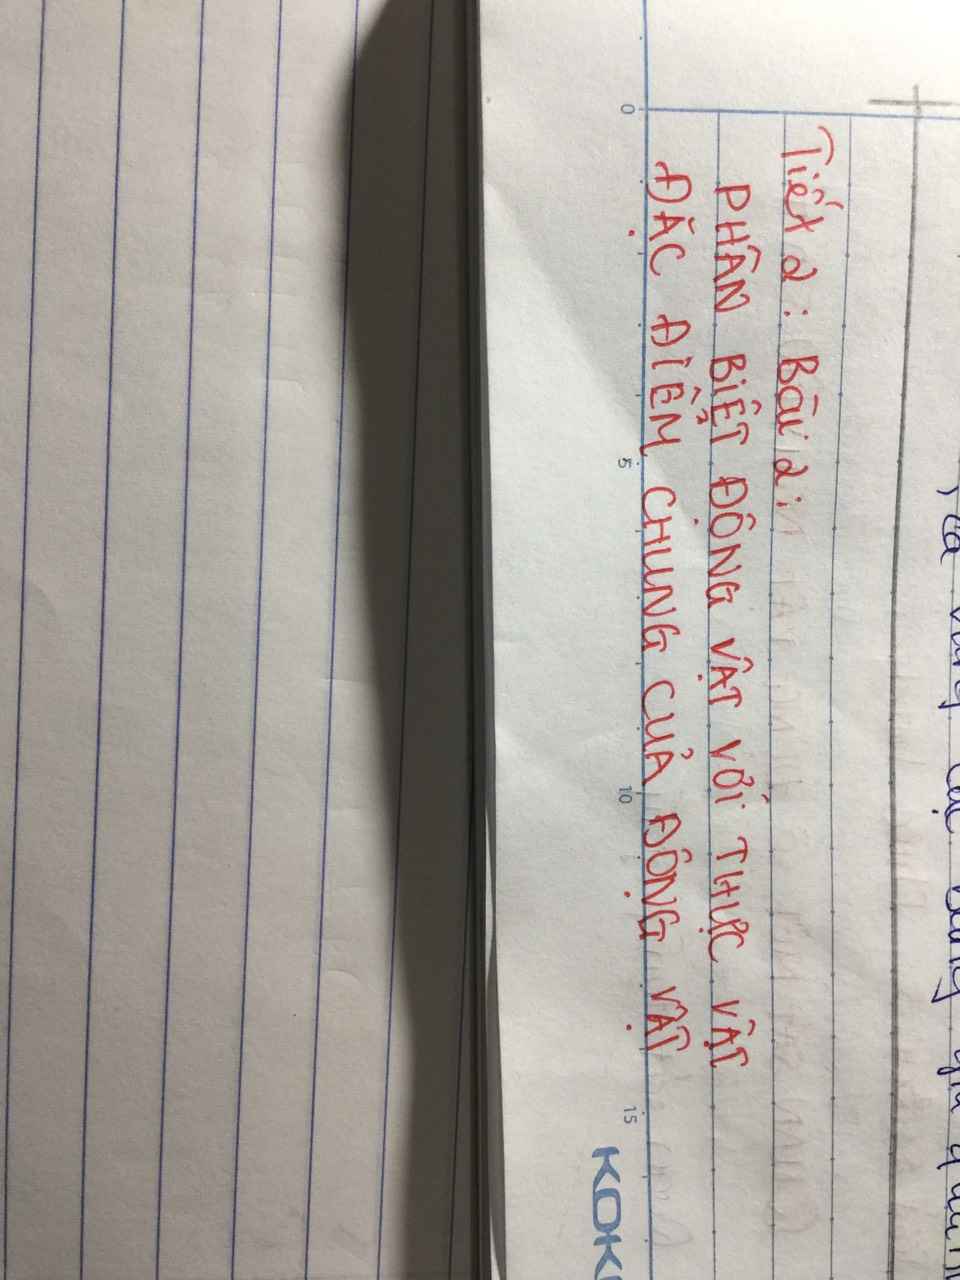 Tiết 2: Bài 2:
PHÂN BIỆT ĐỘNG VẬT VỚI THỰC VẬT
ĐẶC ĐIỂM CHUNG CỦA ĐỘNG VẬT
0 5 10 15